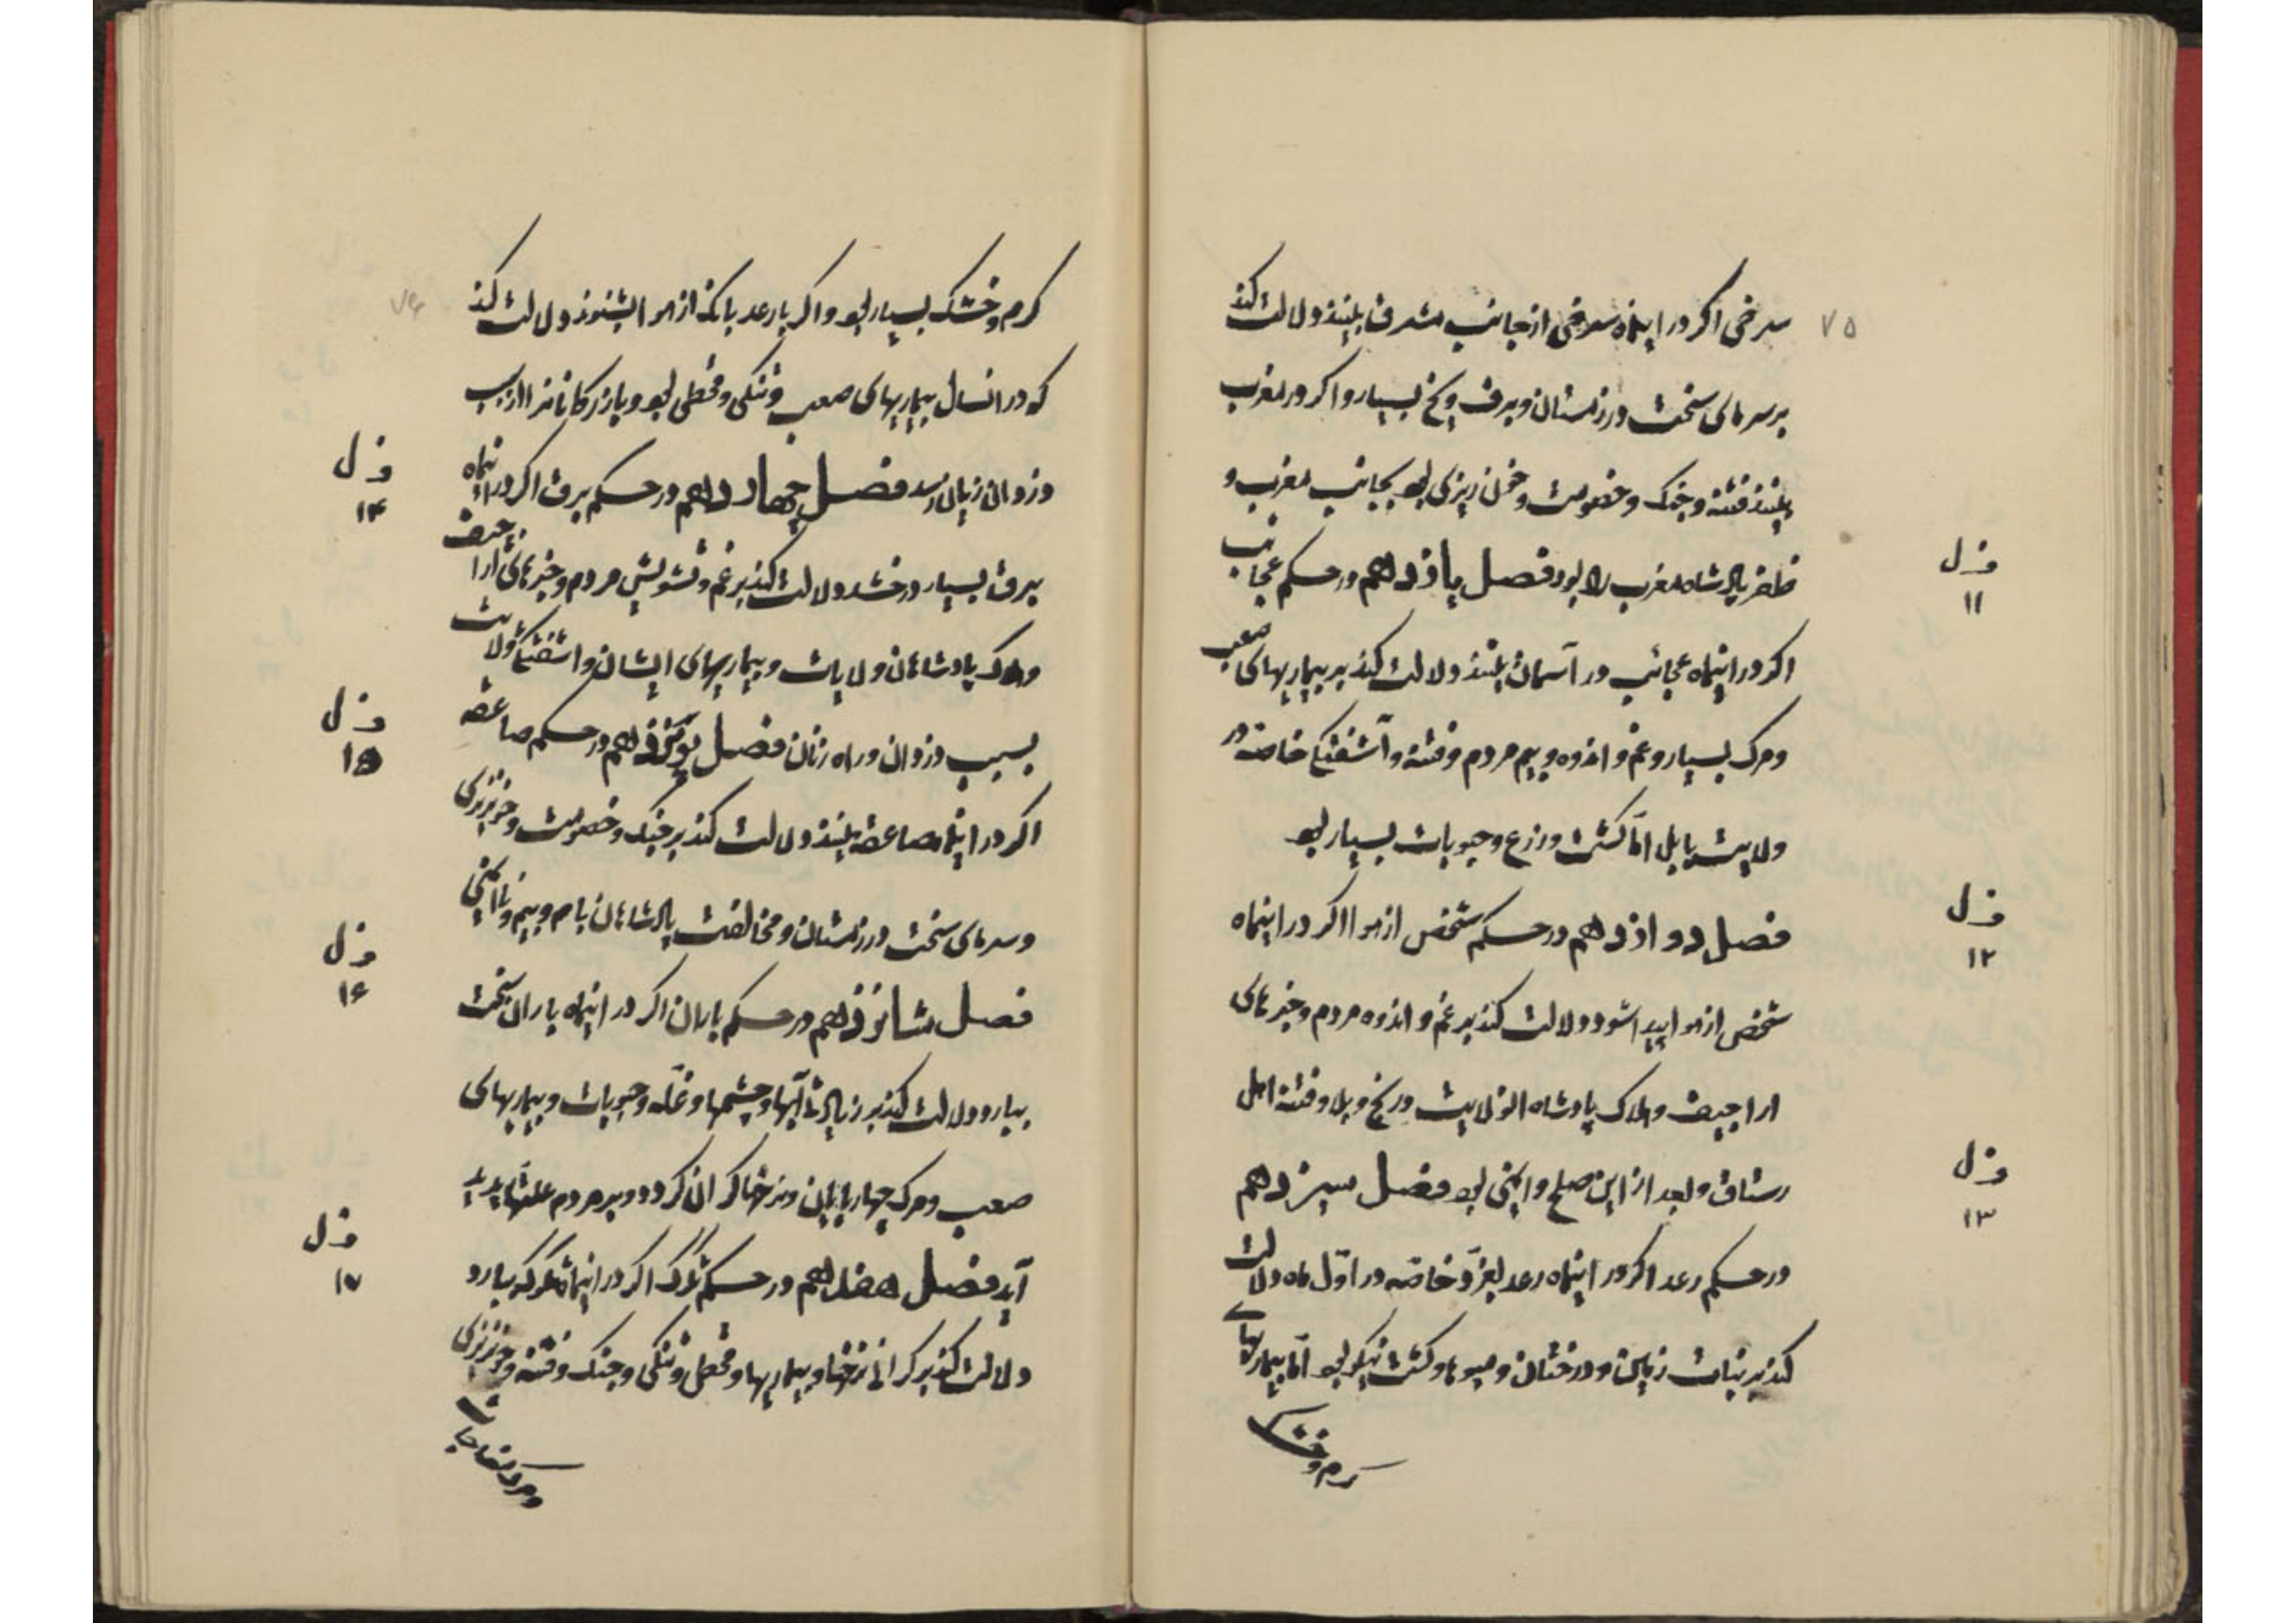 ۷۵
سرخی اکر در اینماه سرخی از جانب مشرق بینند دلالت کند
بر سرمای سخت در زمستان و برف و یخ بسیار و اکر در مغرب
بینند فتنه و جنک و خصومت و خون ریزی بود بجانب مغرب و
ظفر پادشاه مغرب را بود فصل یازدهم در حکم عجائب
ف ل
۱۱
اکر در اینماه عجائب در آسمان بینند دلالت کند بر بیماریهای صعب
و مرک بسیار و غم و اندوه و بیم مردم و فتنه و آشفتکی خاصه در
ولایت بابل امّا کشت و زرع و حبوبات بسیار بود
فصل دوازدهم در حکم شخص از هوا اکر در اینماه
ف ل
۱۲
شخص از هوا پیدا شود دلالت کند بر غم و اندوه مردم و خبرهای
اراجیف و هلاک پادشاه الولایت و رنج و بلا و فتنه اهل
رستاق و بعد از این صلح و ایمنی بود فصل سیزدهم
ف ل
۱۳
در حکم رعد اکر در اینماه رعد بغرّد خاصّه در اوّل ماه دلالت
کند بر نبات زمین و درختان و میوها و کشت نیکو بود امّا بیماریهای
کرم و خشک
۷۶
کرم و خشک بسیار بود و اکر با رعد بانک از هوا بشنوند دلالت کند
که در انسال بیماریهای صعب و تنکی و قحطی بود و بازرکانانرا از سبب
دزدان زیان رسد فصل چهاردهم در حکم برق اکر در اینماه
ف ل
۱۴
برق بسیار درخشد دلالت کند بر غم و تشویش مردم و خبرهای اراجیف
و هلاک پادشاهان ولایات و بیماریهای ایشان و اشفتکی ولایت
بسبب دزدان و راه زنان فصل پونزدهم در حکم صاعقه
ف ل
۱۵
اکر در اینماه صاعقه بینند دلالت کند بر جنک و خصومت و خونریزی
و سرمای سخت در زمستان و مخالفت پادشاهان باهم و بیم و ناایمنی
فصل شانزدهم در حکم باران اکر در اینماه باران سخت
ف ل
۱۶
ببارد دلالت کند بر زیادتی آبها و چشمها و غلّه و حبوبات و بیماریهای
صعب و مرک چهارپایان و نرخها کران کردد و بر مردم علتها پدید
آید فصل هفدهم در حکم تکرک اکر در اینماه تکرک ببارد
ف ل
۱۷
دلالت کند بر کرانی نرخها و بیماریها و قحطی و تنکی و جنک و فتنه و خونریزی
و مرک مفاجات